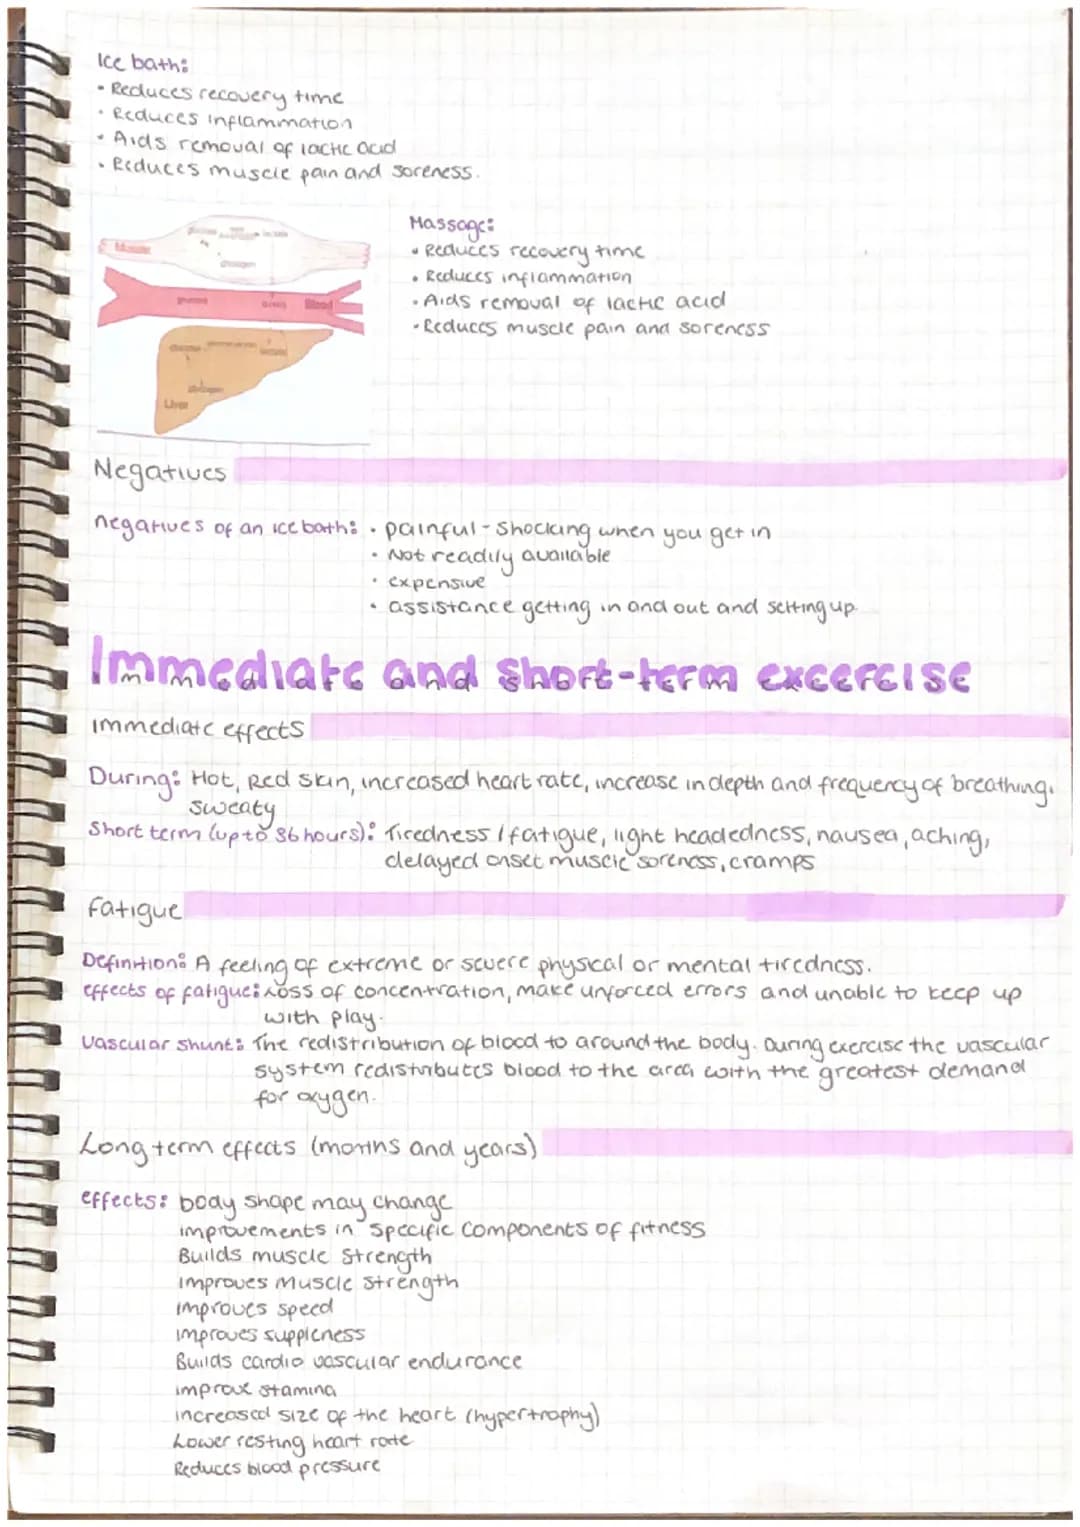 Ice bath:
• Reduces recovery time
• Reduces inflammation
• Aids removal of lactic acid
• Reduces muscle pain and soreness.
Muscle
glucose
glycogen
glucose
Blood
glucose
lactate
glycogen
Liver
Massage:
• Reduces recovery time
• Reduces inflammation
• Aids removal of lactic acid
• Reduces muscle pain and soreness
Negatives
negatives of an ice bath: • painful - Shocking when you get in
• Not readily available
• expensive
• assistance getting in and out and setting up.
Immediate and Short-term excercise
immediate effects
During: Hot, Red skin, increased heart rate, increase in depth and frequency of breathing.
sweaty
Short term (up to 36 hours): Tiredness / fatigue, light headedness, nausea, aching,
delayed onset muscle soreness, cramps
Fatigue
Definition: A feeling of extreme or severe physical or mental tiredness.
effects of fatigue: Loss of concentration, make unforced errors and unable to keep up
with play.
Vascular shunt: The redistribution of blood to around the body. During exercise the vascular
system redistributes blood to the area with the greatest demand
for oxygen.
Long term effects (months and years)
effects: body shape may change
improvements in specific components of fitness
Builds muscle strength
improves muscle strength
improves speed
improves suppleness
Builds cardio vascular endurance
improve stamina
increased size of the heart (hypertrophy)
Lower resting heart rate
Reduces blood pressure